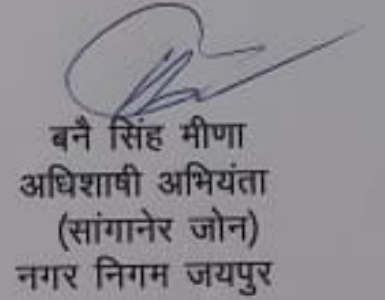 बनै सिंह मीणा
अधिशाषी अभियंता
(सांगानेर जोन)
नगर निगम जयपुर